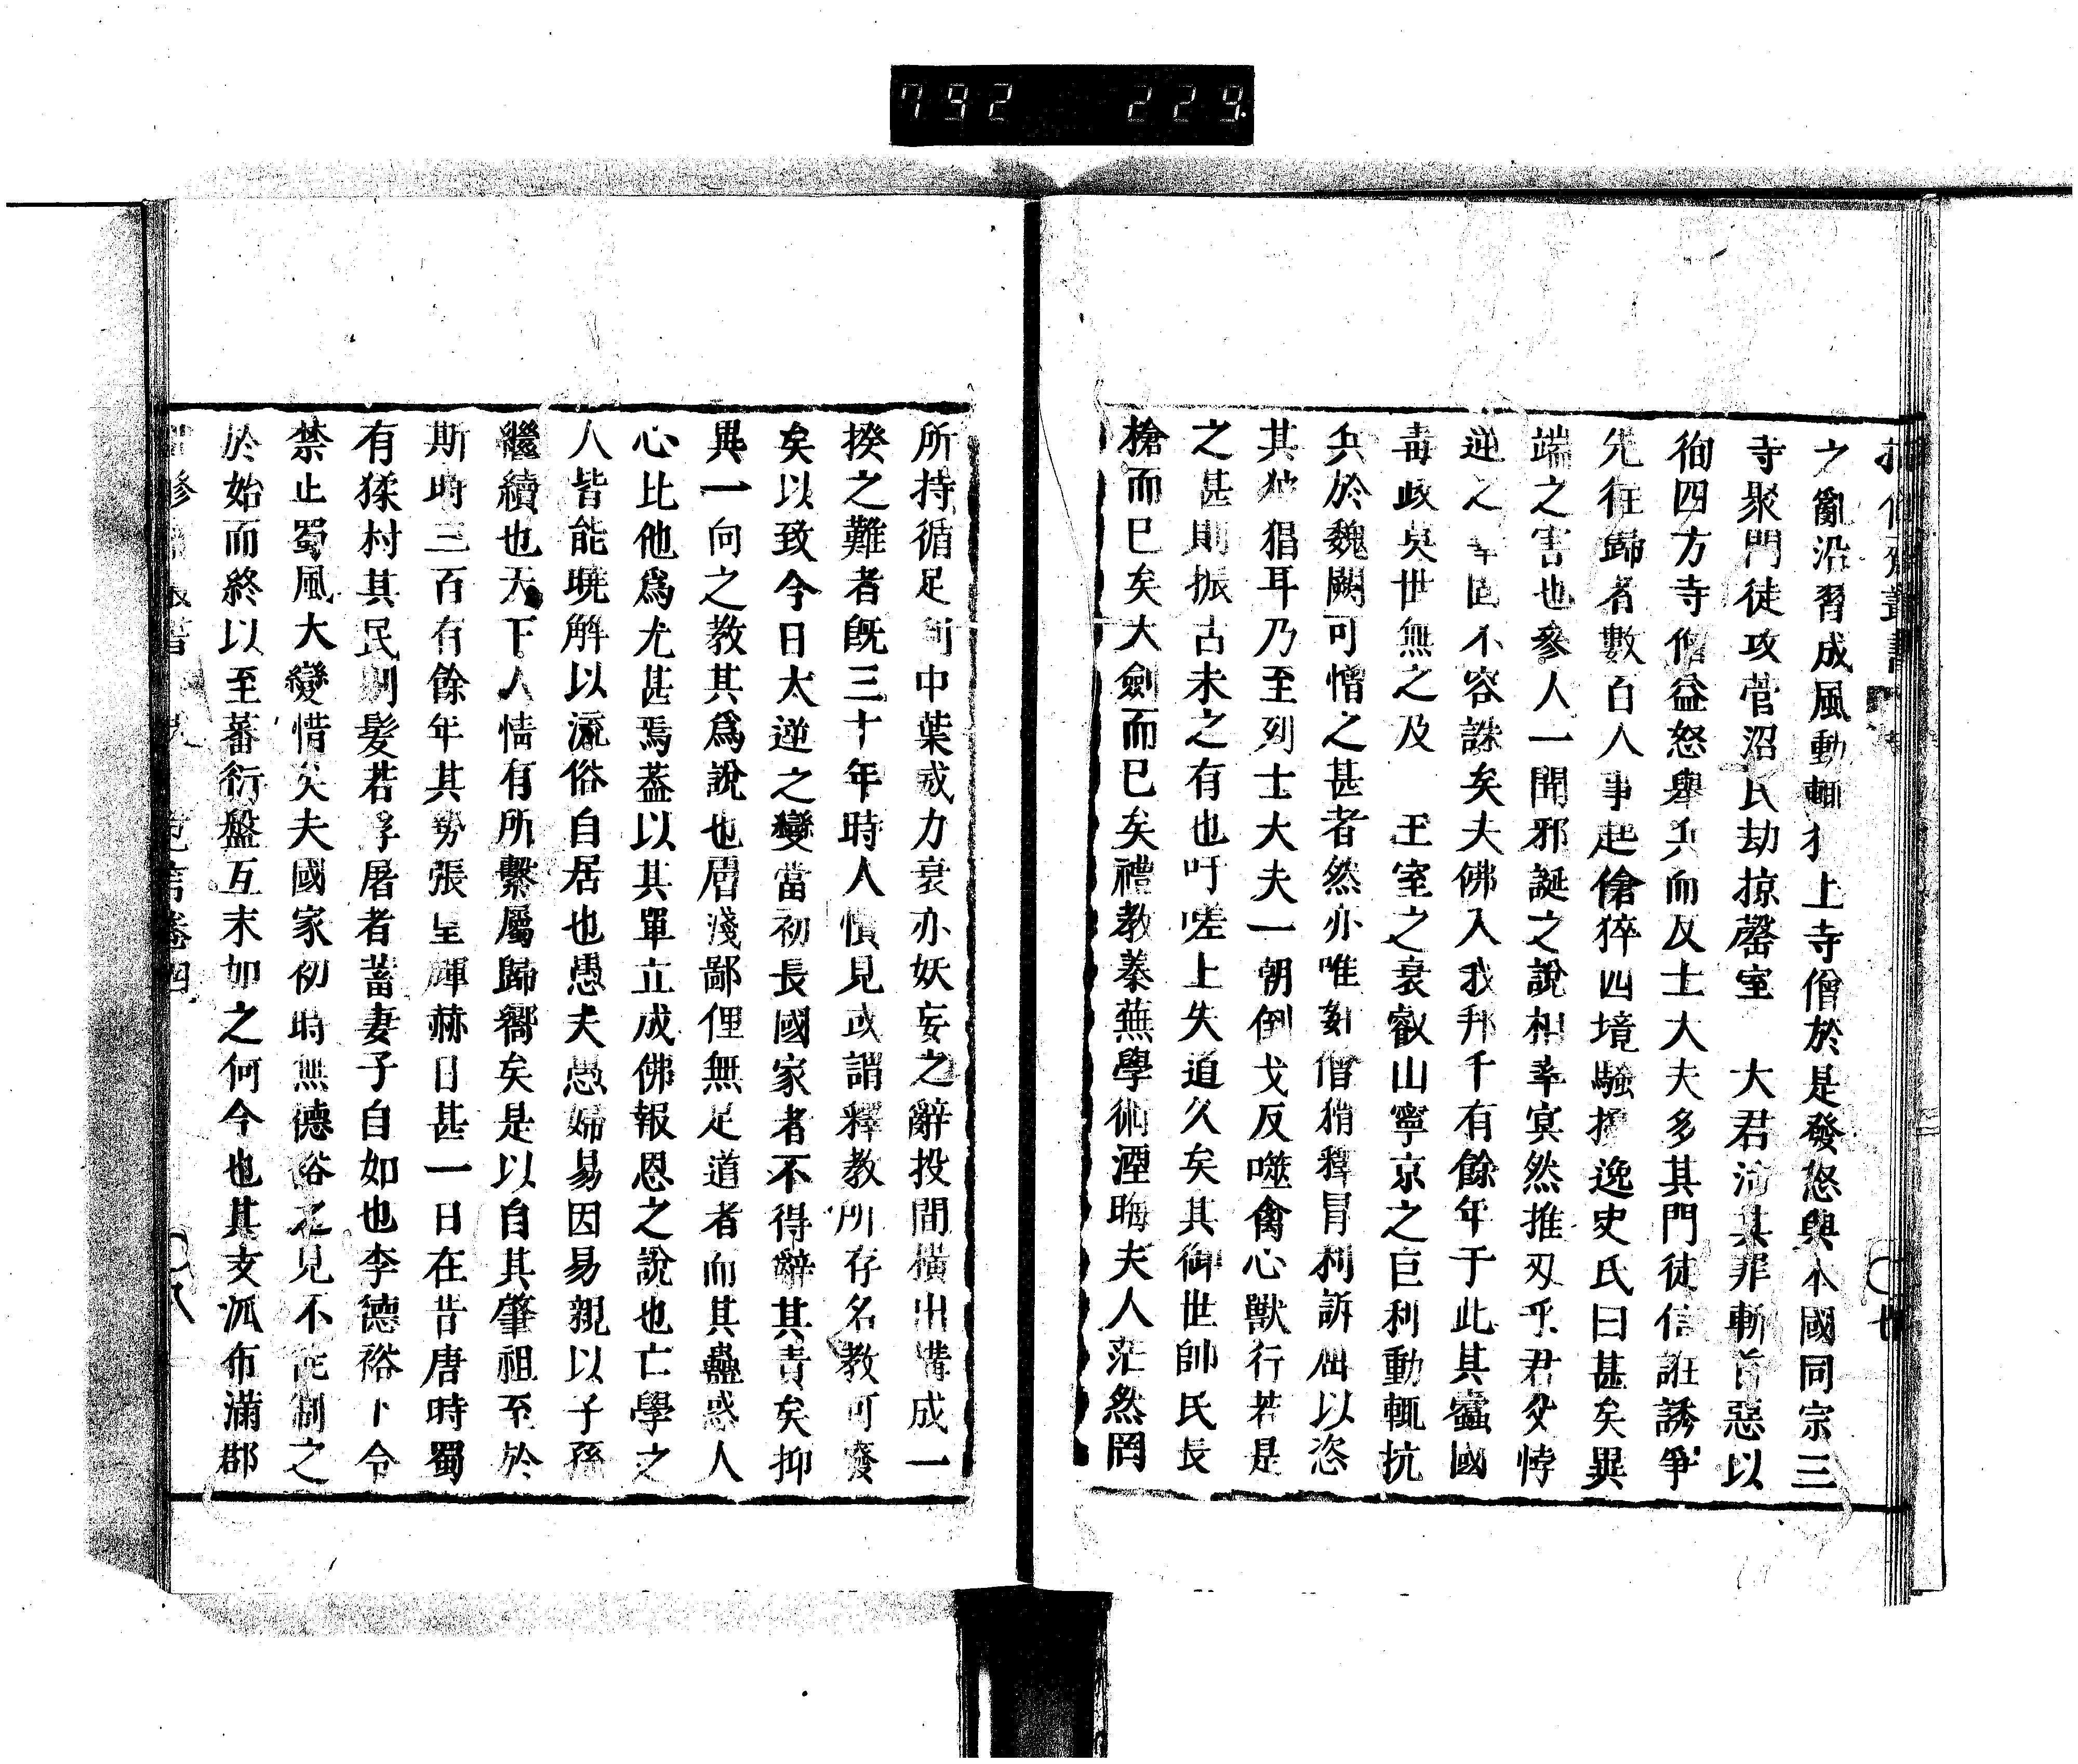 792 229
之亂沿習成風動輒犯上寺僧於是發怒與本國同宗三
寺聚門徒攻菅沼氏劫掠罄室 大君治其罪斬首惡以
徇四方寺僧益怒舉兵而反士大夫多其門徒信誑誘爭
先往歸者數百人事起傖猝四境騷擾逸史氏曰甚矣異
端之害也豢人一聞邪誕之說相率冥然推刃乎君父悖
逆之辜固不容誅矣夫佛入我邦千有餘年于此其蠧國
毒政莫世無之及 王室之衰叡山寧京之巨利動輒抗
兵於魏闕可憎之甚者然亦唯姦僧猾釋冒利訴屈以恣
其猖耳乃至列士大夫一朝倒戈反噬禽心獸行若是
之甚則振古未之有也吁嗟上失道久矣其御世帥民長
槍而已矣大劍而已矣禮教蓁蕪學術湮晦夫人茫然罔
所持循足利中葉威力衰亦妖妄之辭投間橫出構成一
揆之難者既三十年時人慣見或謂釋教所存名教可廢
矣以致今日大逆之變當初長國家者不得辭其責矣抑
異一向之教其爲說也層淺鄙俚無足道者而其蠱惑人
心比他爲尤甚焉蓋以其單立成佛報恩之說也亡學之
人皆能曉解以流俗自居也愚夫愚婦易因易親以子孫
繼續也天下人情有所繫屬歸嚮矣是以自其肇祖至於
斯時三百有餘年其勢張皇輝赫日甚一日在昔唐時蜀
有猱村其民剔髮若浮屠者蓄妻子自如也李德裕下令
禁止蜀風大變惜矣夫國家初時無德裕之見不能制之
於始而終以至蕃衍盤互末如之何今也其支派布滿郡
卷四